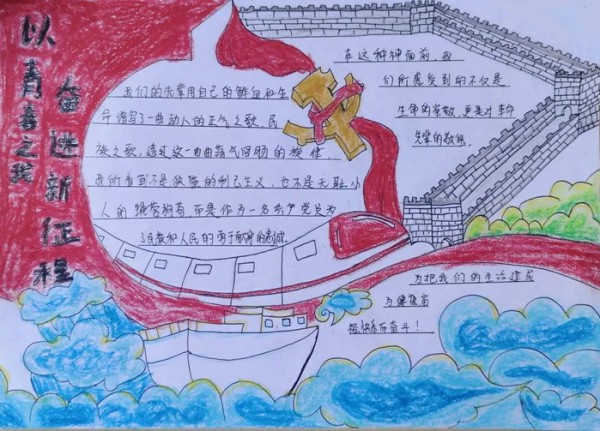 以青春之我
奋进新征程
我们的先辈用自己的鲜血和生
命谱写了一曲动人的正气之歌、民
族之歌。透过这一曲曲荡气回肠的旋律,
我们看到不是做监的利己主义,也不是无耻小
人的损公肥私,而是作为一名共产党员为
了民族和人民的勇于献身的忠诚。
在这种种面前,我
们所感受到的不仅是
生命的崇敬,更是对革命
先辈的敬仰。
为把我们的生活建成
为
而奋斗!